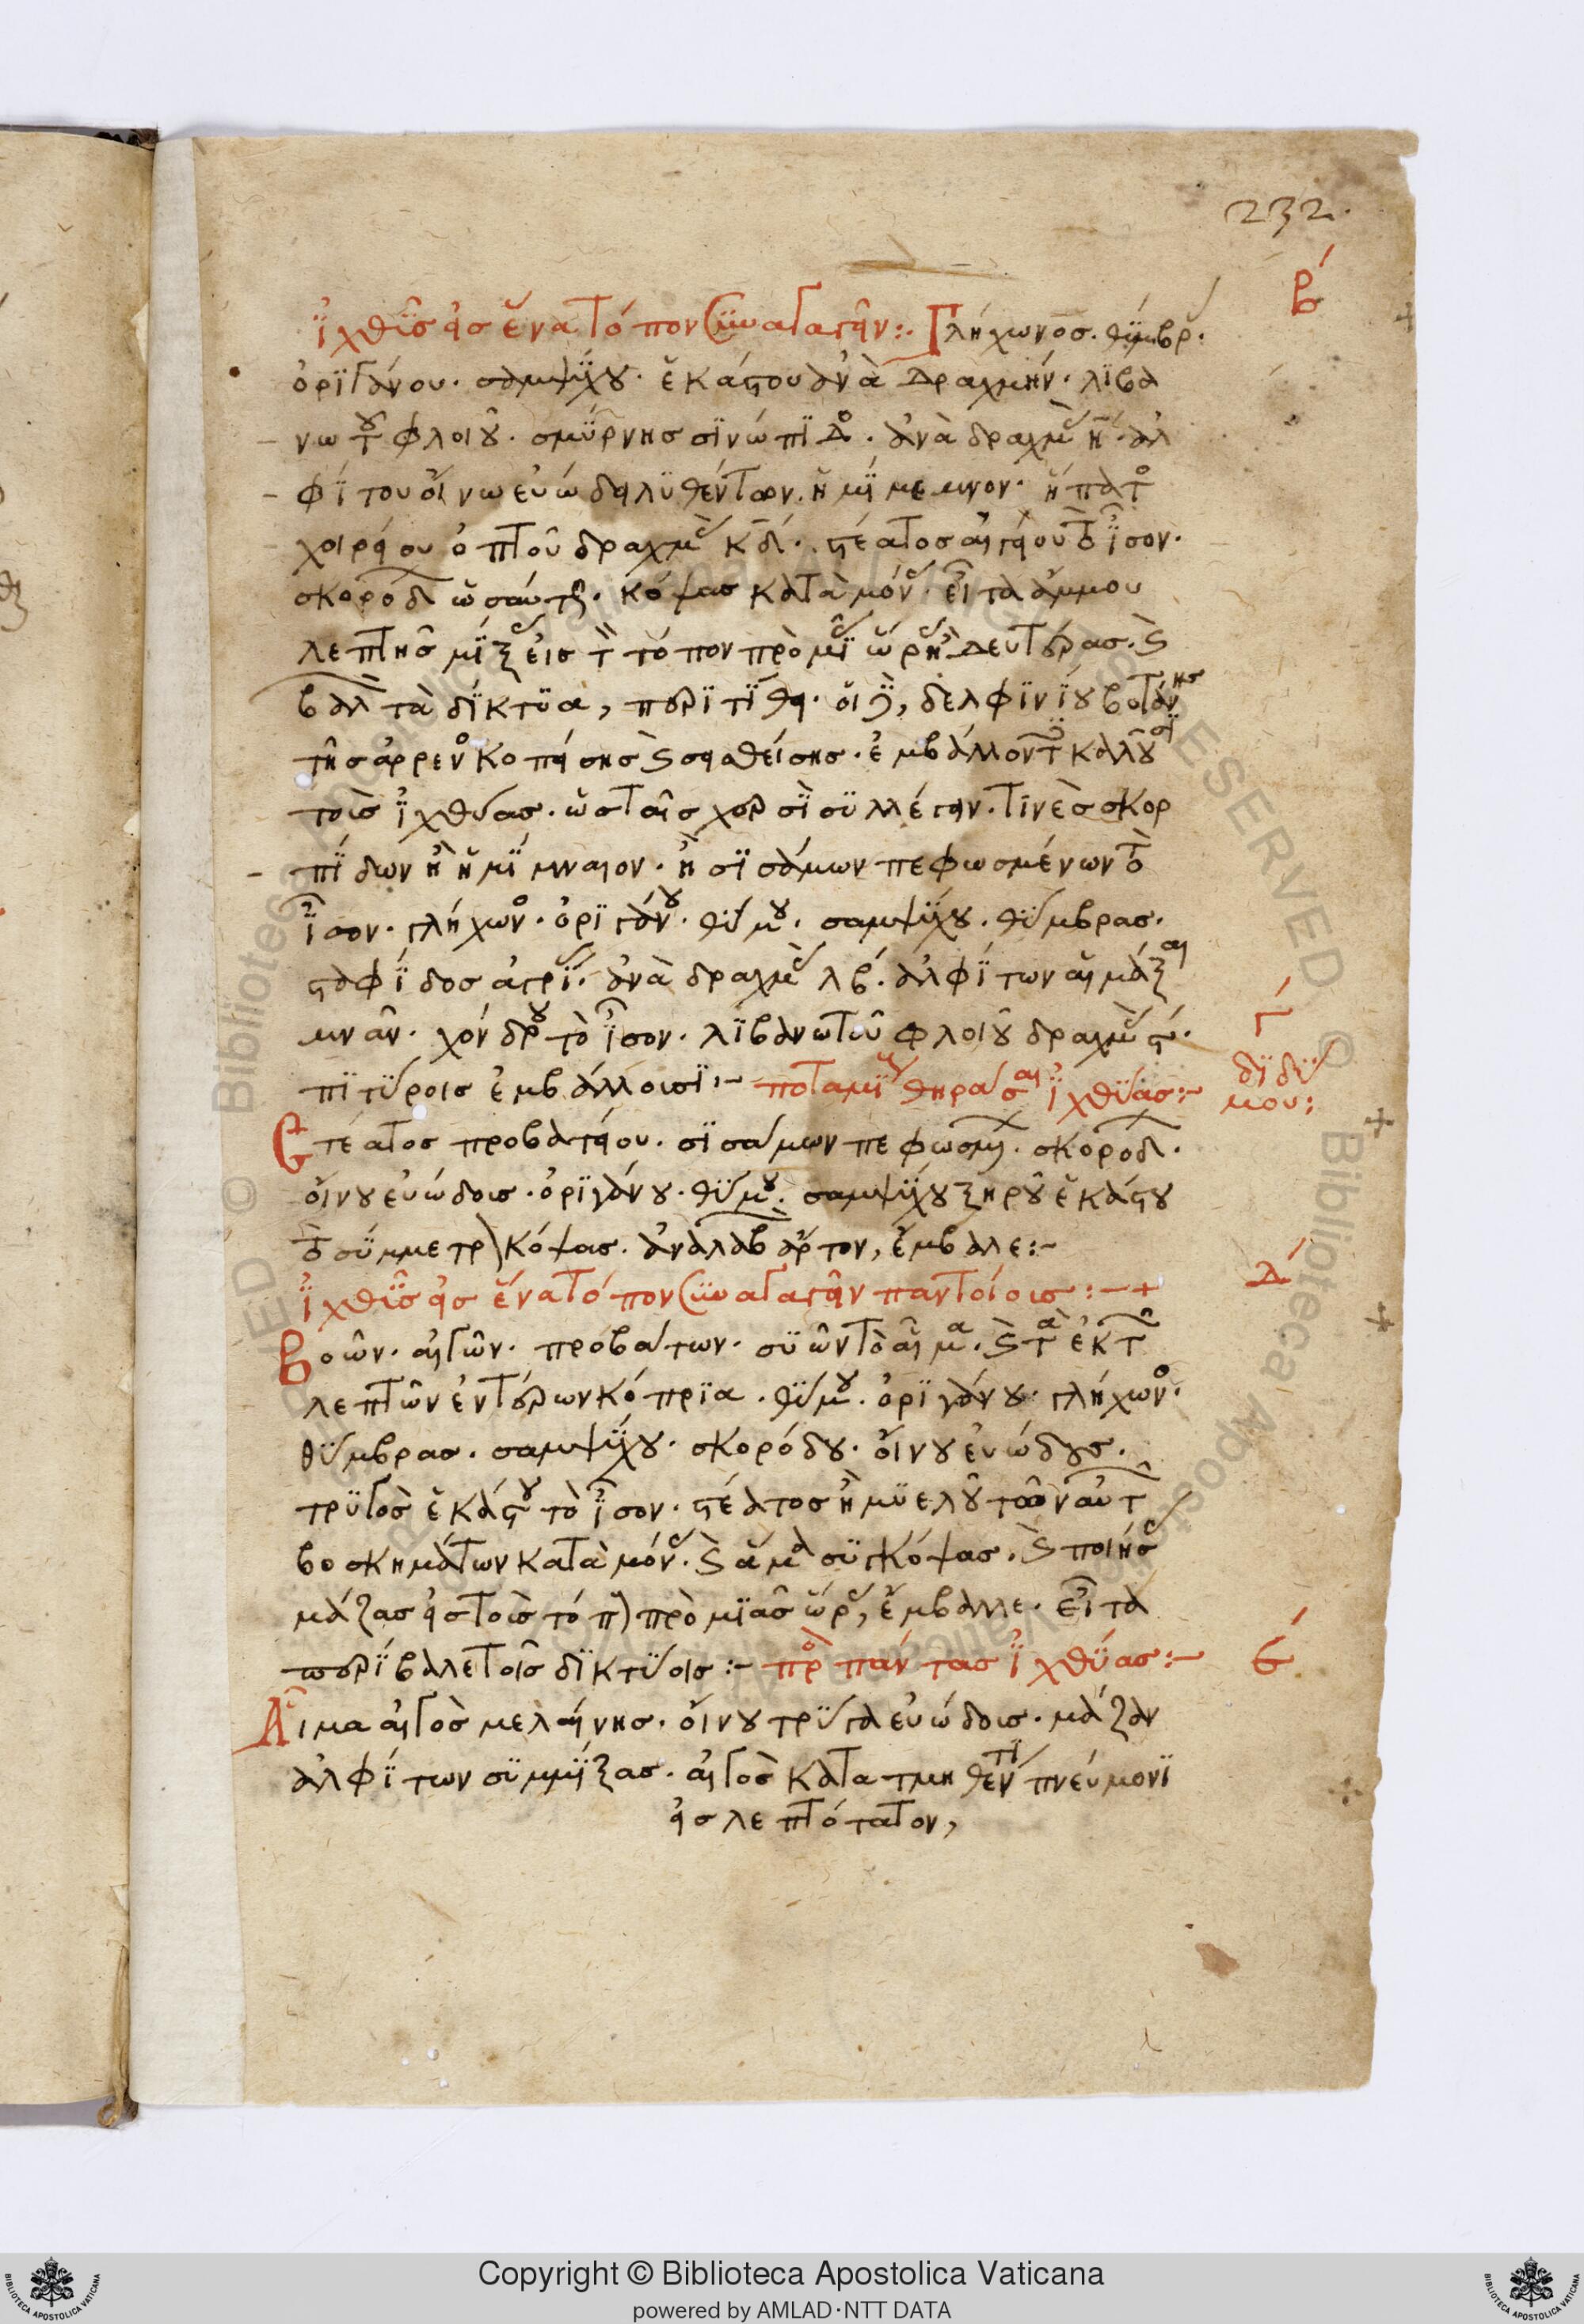 232.
β´
ἰχθῦς εἰς ἕνα τόπον συναγαγεῖν:. Γλήχωνος. θύμβρ.
ὀριγάνου. σαμψύχου. ἑκάστου ἀνὰ δραχμήν. λιβα
νωτοῦ φλοιοῦ. σμύρνης σινώπιδο. ἀνὰ δραχμὰς η´. ἀλ
φίτου οἴνω εὐώδει λυθέντων. ἡμίμεμνον. ἥπατο
χοιρείου ὀπτοῦ δραχμὰς κδ. στέατος αἰγείου τὸ ἴσον.
σκορόδ ὡσαύτως. κόψας κατὰ μόνας. εἶτα ἄμμου
λεπτῆς μίξας εἰς τὸν τόπον πρὸ μιᾶς ὥρας ἢ δευτέρας. καὶ
βαλὼν τὰ δίκτυα, περιτίθει. οἱ δὲ, δελφινίου βοτάνης
τῆς ἄρρενο κοπείσης καὶ σηθείσης. ἐμβάλλοντες καλοῦσι
τοὺς ἰχθύας. ὡς ταῖς χερσὶ συλλέγειν. τινὲς σκορ
πίδων ἢ ἡμιμναιον. ἢ σισάμων πεφωσμένων τὸ
ἴσον. γλήχωνο. ὀριγάνου. θύμου. σαμψύχου. θύμβρας.
σταφίδος ἀγρίας. ἀνὰ δραχμὰς λβ. ἀλφίτων αἱμάξαι
μνᾶν. χόνδρου τὸ ἴσον. λιβανωτοῦ φλοιοῦ δραχμὰς ϛ´.
πιτύροις ἐμβάλλουσι:- ποταμίους θηρᾶσαι ἰχθύας:-
Γ´
διδύ
μου:
Στέατος προβατείου. σισάμων πεφωσμ. σκοροδ.
οἴνου εὐώδους. ὀριγάνου. θύμου. σαμψύχου ξηροῦ ἑκάστου
τὸ σύμμετρ κόψας. ἀναλαβ ἄρτον, ἔμβαλε:-
Δ´
ἰχθῦς εἰς ἕνα τόπον συναγαγεῖν παντοίους:-+
Βοῶν. αἰγῶν. προβάτων. συῶν τὸ αἷμα. καὶ τὰ ἐκ τῶν
λεπτῶν ἐντέρων κόπρια. θύμου. ὀριγάνου. γλήχωνο.
θύμβρας. σαμψύχου. σκορόδου. οἴνου εὐώδους.
τρυγὸς ἑκάστου τὸ ἴσον. στέατος ἢ μυελοῦ τῶν αὐτῶν
βοσκημάτων κατὰ μόνας. καὶ ἅμα συγκόψας. καὶ ποιήσας
μάζας εἰς τοὺς τόπ πρὸ μιᾶς ὥρας, ἔμβαλλε. εἶτα
περίβαλε τοῖς δικτύοις:- πρὸς πάντας ἰχθύας:-
Ε´
Αἷμα αἰγὸς μελαίνης. οἴνου τρύγα εὐώδους. μάζαν
ἀλφίτων συμμίξας. αἰγὸς κατατμηθέντι πνεύμονι
εἰς λεπτότατον,
Copyright © Biblioteca Apostolica Vaticana
powered by AMLAD·NTT DATA